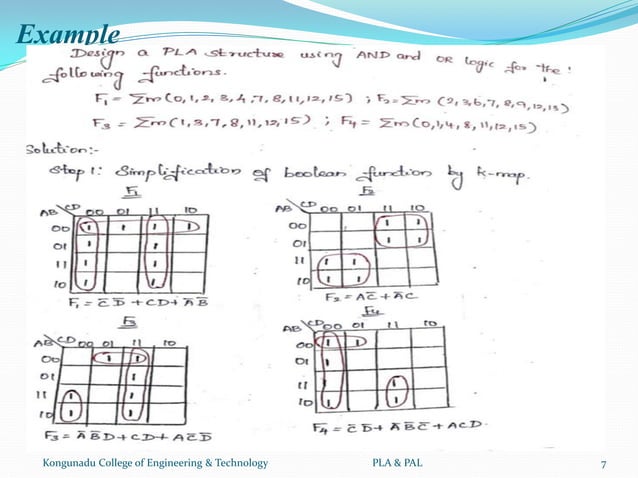 Example
Design a PLA structure using AND and OR logic for the
following functions.
F₁ = Σm(0,1,2,3,4,7,8,11,12,15) ; F₂ = Σm (2,3,6,7,8,9,12,13)
F₃ = Σm(1,3,7,8,11,12,15) ; F₄ = Σm(0,1,4,8,11,12,15)
Solution:-
Step 1: Simplification of boolean function by K-map.
F₁ F₂
AB CD 00 01 11 10
00 1 1 1 1
01 1 1
11 1 1
10 1 1
F₁ = C̅ D̅ + CD + A̅ B̅
AB CD 00 01 11 10
00 1 1
01 1 1
11 1 1
10 1 1
F₂ = AC̅ + A̅C
F₃ F₄
AB CD 00 01 11 10
00 1 1
01 1
11 1 1
10 1 1
F₃ = A̅ B̅ D + CD + A C̅ D̅
AB CD 00 01 11 10
00 1 1
01 1
11 1 1
10 1 1
F₄ = C̅ D̅ + A̅ B̅ C̅ + ACD.
Kongunadu College of Engineering & Technology PLA & PAL 7